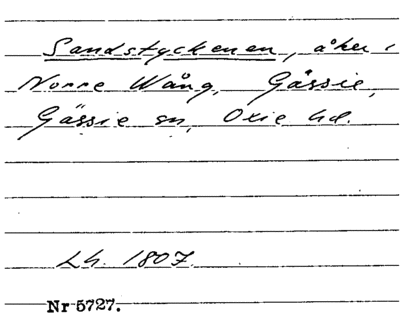 Sandstyckenen, åker i
Norre Wång, Gässie,
Gässie sn, Oxie hd.
Lh. 1807.
Nr 5727.